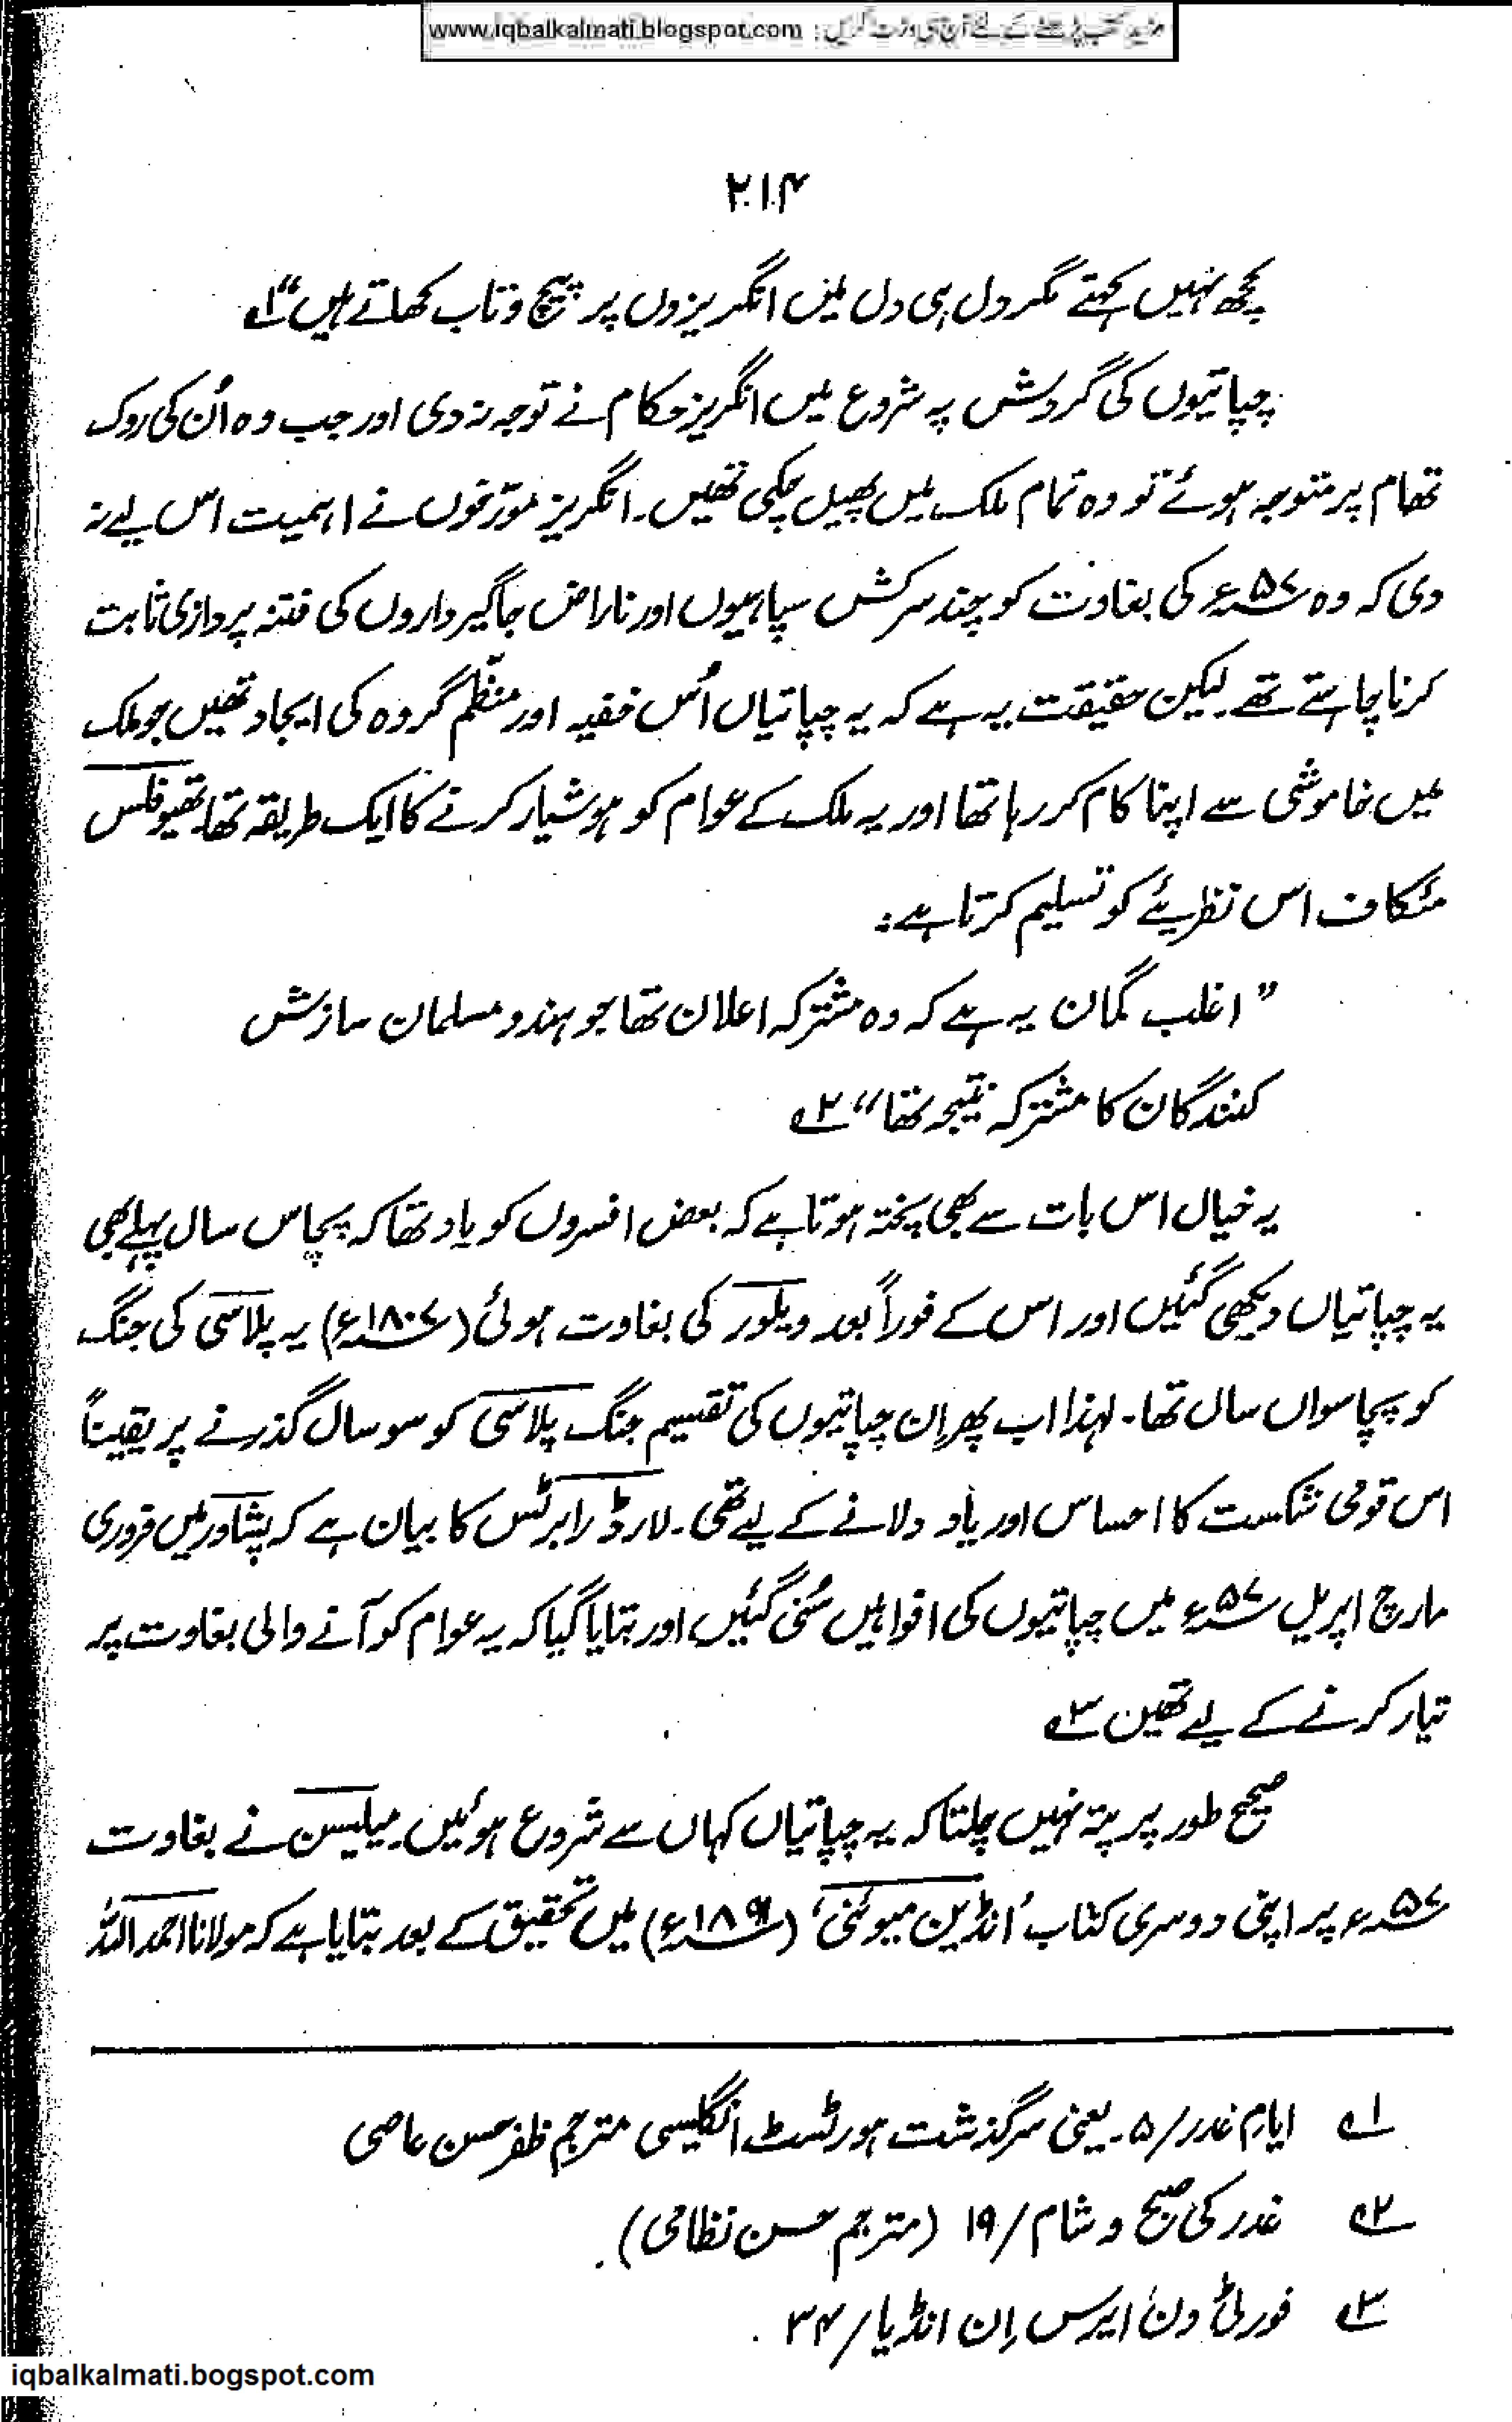 مزید کتب پڑھنے کے لئے آج ہی وزٹ کریں : www.iqbalkalmati.blogspot.com
۲۱۴
کچھ نہیں کہتے مگر دل ہی دل میں انگریزوں پر پیچ و تاب کھاتے ہیں“ ۱؎
چپاتیوں کی گردش پہ شروع میں انگریز حکام نے توجہ نہ دی اور جب وہ اُن کی روک
تھام پر متوجہ ہوئے تو وہ تمام ملک میں پھیل چکی تھیں۔ انگریز مورّخوں نے اہمیت اس لیے نہ
دی کہ وہ ۵۷ء کی بغاوت کو چند سرکش سپاہیوں اور ناراض جاگیرداروں کی فتنہ پردازی ثابت
کرنا چاہتے تھے لیکن حقیقت یہ ہے کہ یہ چپاتیاں اُس خفیہ اور منظّم گروہ کی ایجاد تھیں جو ملک
میں خاموشی سے اپنا کام کر رہا تھا اور یہ ملک کے عوام کو ہوشیار کرنے کا ایک طریقہ تھا۔ تھیوفلس
مٹکاف اس نظریئے کو تسلیم کرتا ہے :
”اغلب گمان یہ ہے کہ وہ مشترکہ اعلان تھا جو ہندو مسلمان سازش
کنندگان کا مشترکہ نتیجہ تھا“ ۲؎
یہ خیال اس بات سے بھی پختہ ہوتا ہے کہ بعض افسروں کو یاد تھا کہ پچاس سال پہلے بھی
یہ چپاتیاں دیکھی گئیں اور اس کے فوراً بعد ویلور کی بغاوت ہوئی (۱۸۰۷ء) یہ پلاسی کی جنگ
کو پچاسواں سال تھا۔ لہٰذا اب پھر اِن چپاتیوں کی تقسیم جنگ پلاسی کو سو سال گذرنے پر یقیناً
اس قومی شکست کا احساس اور یاد دلانے کے لیے تھی۔ لارڈ رابرٹس کا بیان ہے کہ پشاور میں فروری
مارچ اپریل ۵۷ء میں چپاتیوں کی افواہیں سُنی گئیں اور بتایا گیا کہ یہ عوام کو آنے والی بغاوت پر
تیار کرنے کے لیے تھیں ۳؎
صحیح طور پر پتہ نہیں چلتا کہ یہ چپاتیاں کہاں سے شروع ہوئیں۔ میلیسن نے بغاوت
۵۷ء پر اپنی دوسری کتاب ’انڈین میوٹنی‘ (۱۸۹۱ء) میں تحقیق کے بعد بتایا ہے کہ مولانا احمد اللہ
۱؎ ایام غدر/۵۔ یعنی سرگذشت ہورٹسٹ انگلیسی مترجم ظفر حسن عاصی
۲؎ غدر کی صبح و شام/۱۹ (مترجم حسن نظامی)
۳؎ فورٹی ون ایرس اِن انڈیا/۳۴
iqbalkalmati.bogspot.com